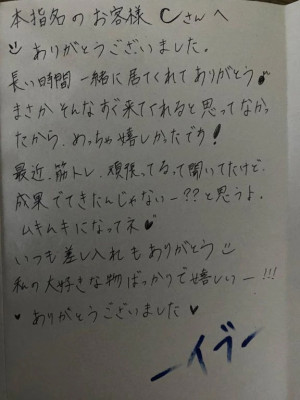 本指名のお客様 Cさんへ
ありがとうございました。
長い時間 一緒に居てくれてありがとう♪
まさかそんなすぐ来てくれると思ってなかっ
たから、めっちゃ嬉しかったです！
最近、筋トレ、頑張ってるって聞いてたけど、
成果でてきたんじゃないー??と思うよ。
ムキムキになってネ♥
いつも差し入れもありがとう
私の大好きな物ばっかりで嬉しいー!!!
♥ありがとうございました♥
ーイブー